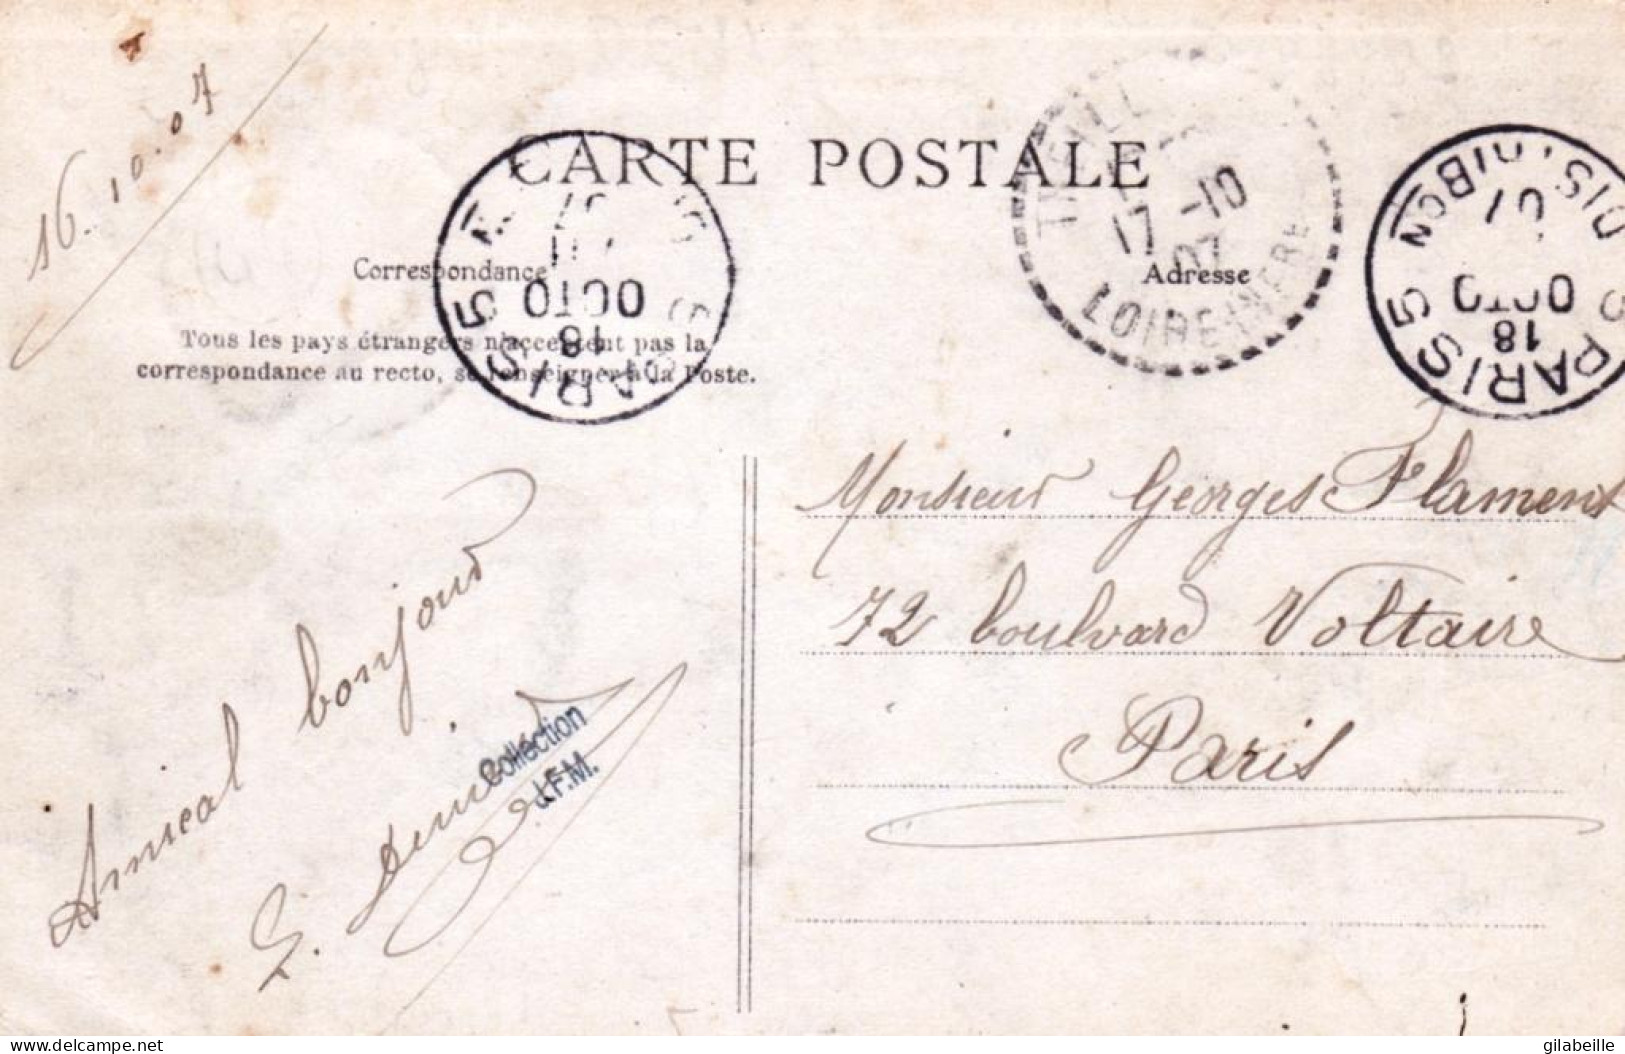 16.10.07
CARTE POSTALE
Correspondance
Tous les pays étrangers n'acceptent pas la
correspondance au recto, se renseigner à la Poste.
17 -10
07
LOIRE-INFRE
Adresse
PARIS 5
18
OCTO
07
PARIS 5
DISTRIBON
18
OCTO
07
Monsieur Georges Flament
72 boulvard Voltaire
Paris
Amical bonjour
Collection
J.F.M.
delcampe.net
gilabeille